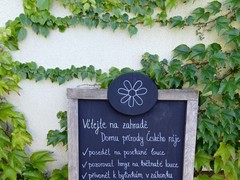 Vítejte na zahradě
Domu přírody Českého ráje
✓ posedět na posekané louce
✓ pozorovat hmyz na květnaté louce
✓ přivonět k bylinkám v záhonku